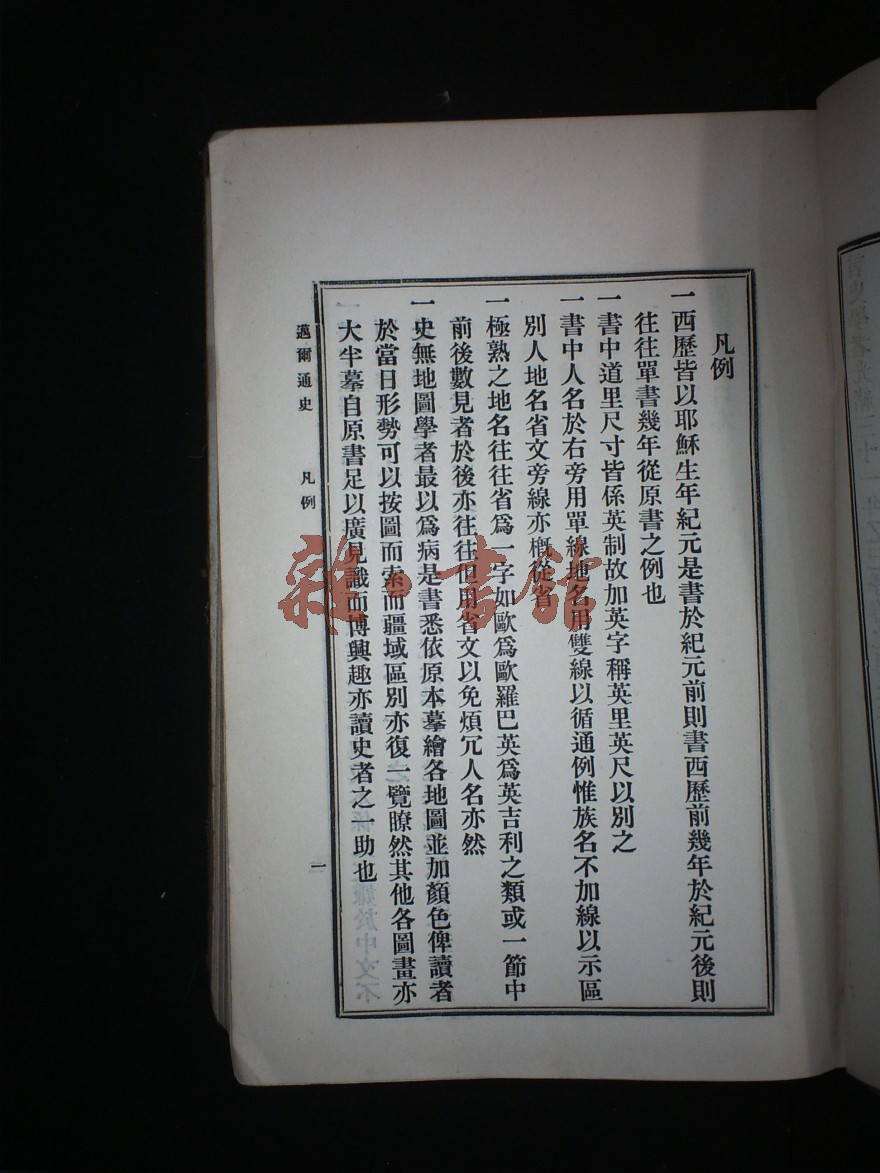 凡例
一西歷皆以耶穌生年紀元是書於紀元前則書西歷前幾年於紀元後則
往往單書幾年從原書之例也
一書中道里尺寸皆係英制故加英字稱英里英尺以別之
一書中人名於右旁用單線地名用雙線以循通例惟族名不加線以示區
別人地名省文旁線亦概從省
一極熟之地名往往省爲一字如歐爲歐羅巴英爲英吉利之類或一節中
前後數見者於後亦往往但用省文以免煩冗人名亦然
一史無地圖學者最以爲病是書悉依原本摹繪各地圖並加顏色俾讀者
於當日形勢可以按圖而索而疆域區別亦復一覽瞭然其他各圖畫亦
大半摹自原書足以廣見識而博興趣亦讀史者之一助也
邁爾通史 凡例 一
雜·書館